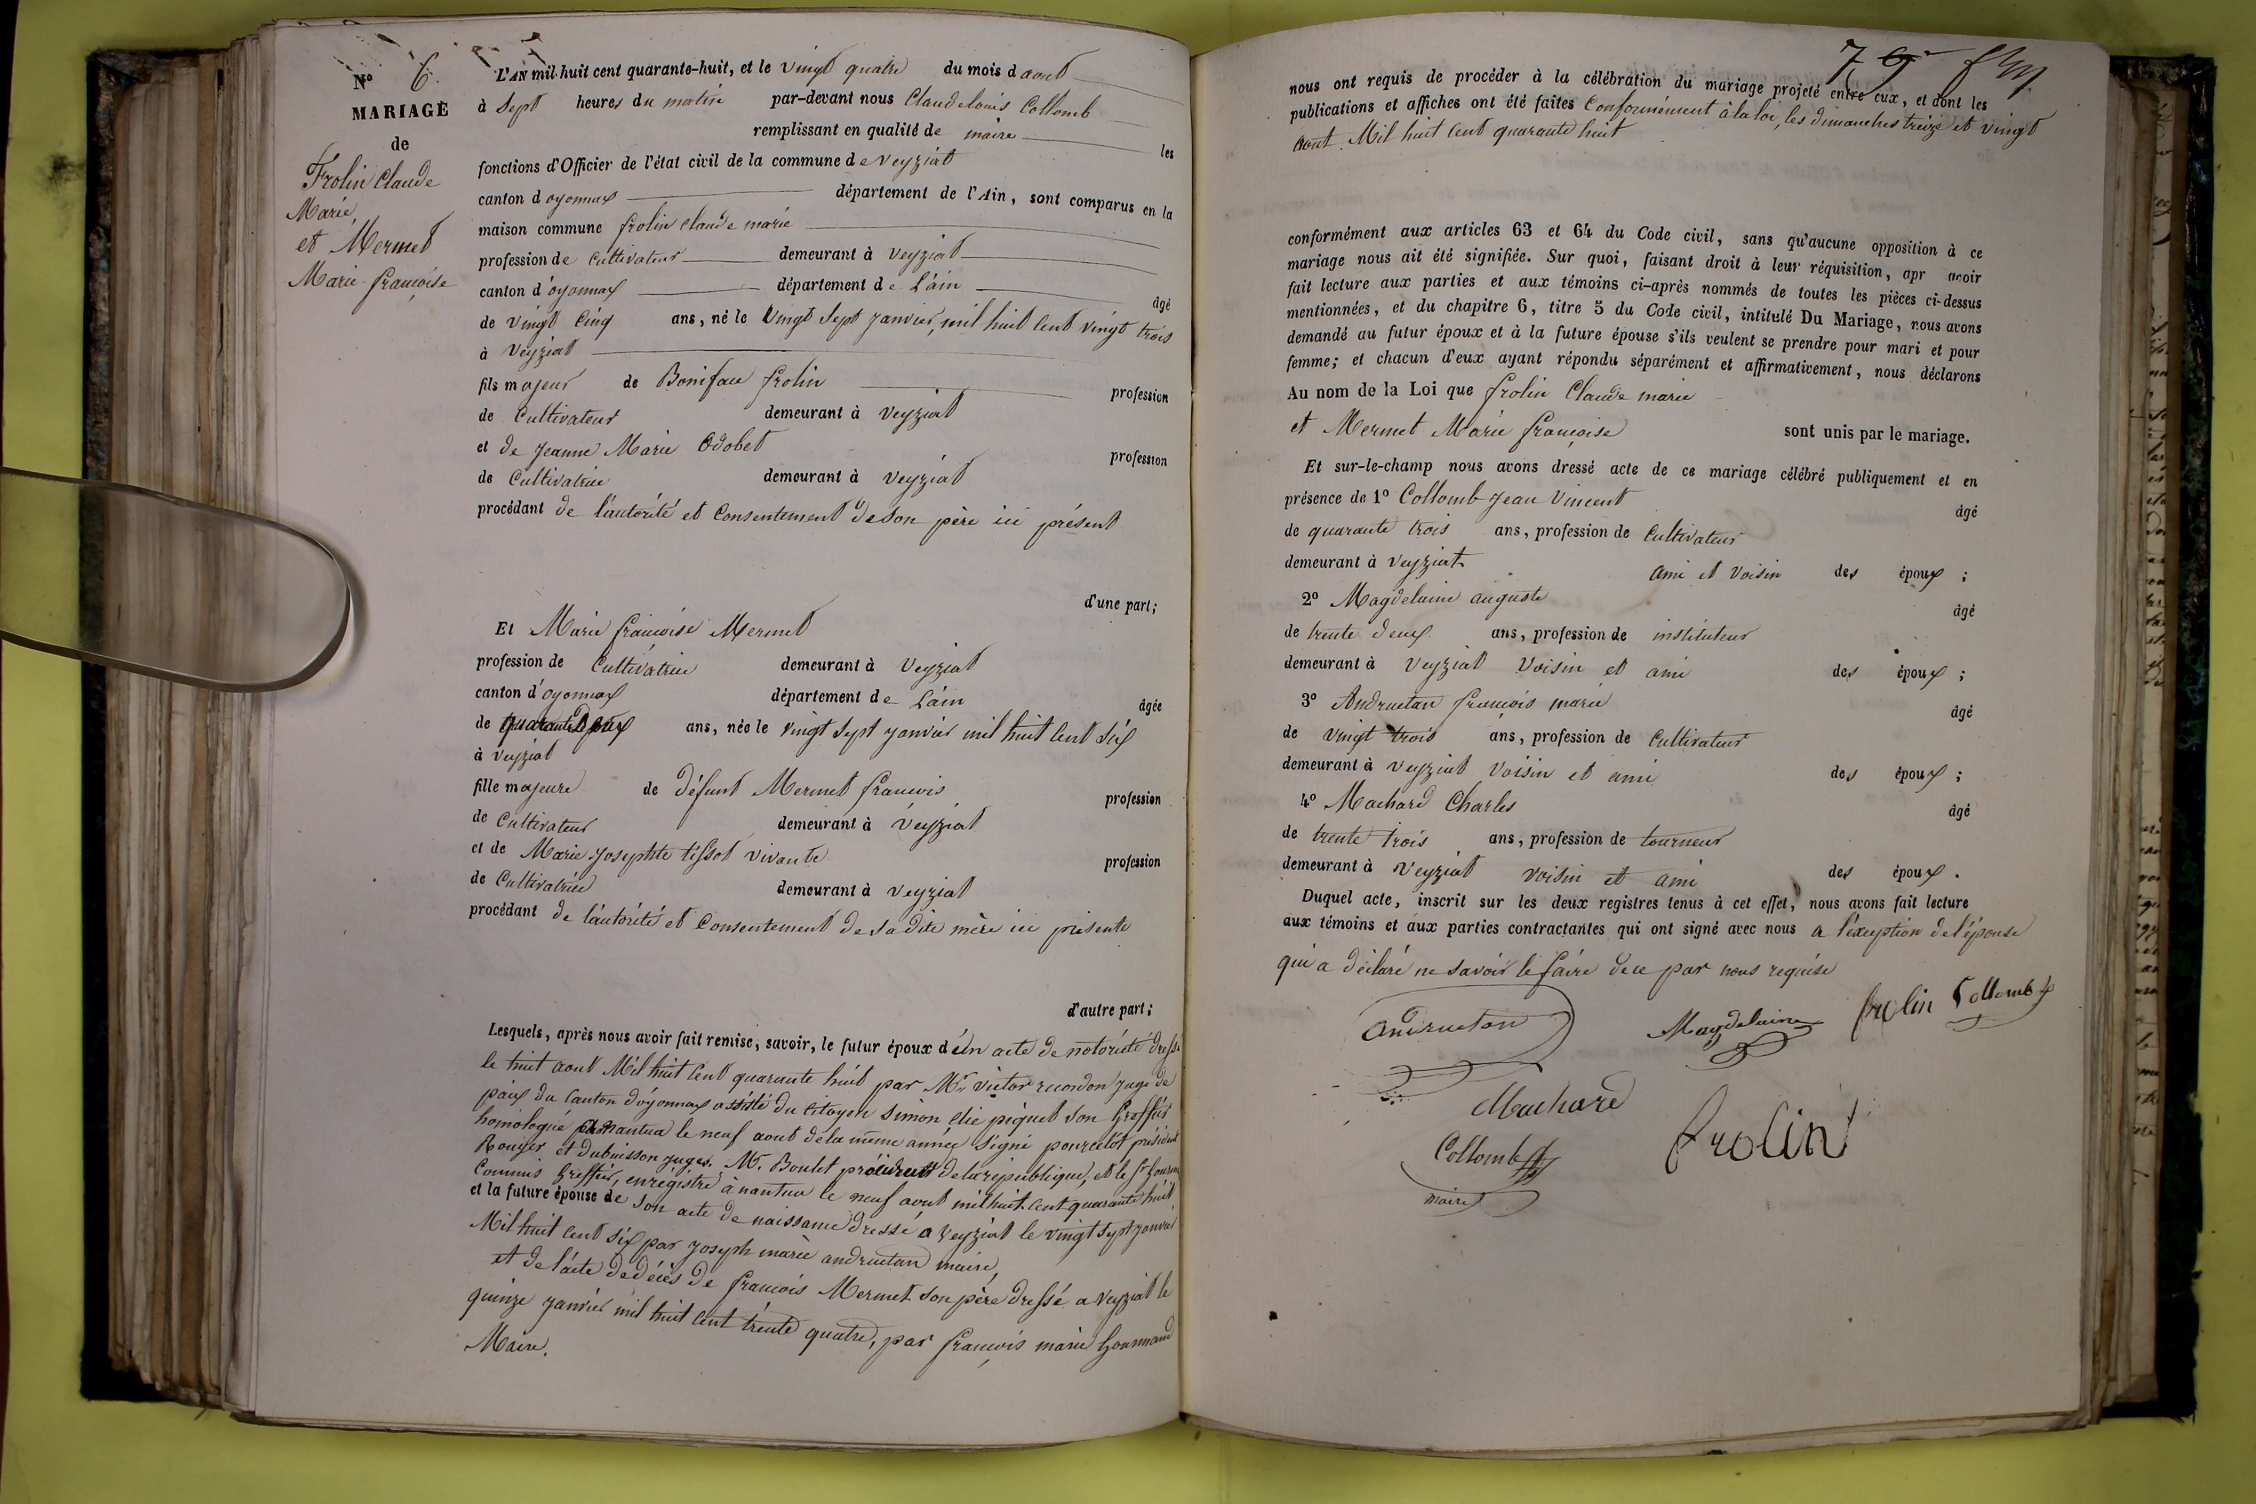 N° 6.
MARIAGE
de
Frolin Claude
Marie,
et Mermet
Marie françoise
L'AN mil huit cent quarante-huit, et le vingt quatre du mois d aout
à Sept heures du matin par-devant nous Claudelouis Collomb
remplissant en qualité de maire les
fonctions d'Officier de l'état civil de la commune de veyziat
canton d oyonnax département de l'Ain, sont comparus en la
maison commune frolin claude marie
profession de cultivateur demeurant à veyziat
canton d'oyonnax département de l'ain âgé
de vingt cinq ans, né le vingt sept janvier, mil huit cent vingt trois
à veyziat
fils majeur de Boniface frolin profession
de Cultivateur demeurant à veyziat
et de jeanne Marie Odobet profession
de Cultivatrice demeurant à veyziat
procédant de l'autorité et Consentement de son père ici présent
d'une part;
Et Marie françoise Mermet
profession de Cultivatrice demeurant à veyziat
canton d'oyonnax département de L'ain âgée
de quarante deux ans, née le vingt sept janvier mil huit cent six
à veyziat
fille majeure de défunt Mermet francois profession
de Cultivateur demeurant à veyziat
et de Marie josephte tissot vivante profession
de Cultivatrice demeurant à veyziat
procédant de l'autorité et Consentement de sa dite mère ici présente
d'autre part;
Lesquels, après nous avoir fait remise, savoir, le futur époux d'un acte de notoriété dressé
le huit aout Mil huit cent quarante huit par Mr victor reecordon juge de
paix du canton d'oyonnax assisté du citoyen simon elie piquet son Greffier
homologué a nantua le neuf aout de la même année signé pourcelot président
Rouyer et dubuisson juges. Mr. Boulet procureur de la république, et le Sr
Commis Greffier, enregistré à nantua le neuf aout mil huit cent quarante huit
et la future épouse de son acte de naissance dressé a veyziat le vingt sept janvier
Mil huit cent six par joseph marie andruetan maire,
et de l'acte de décès de francois Mermet son père dressé a veyziat le
quinze janvier mil huit cent trente quatre, par francois marie Gourmand
Maire.
79
nous ont requis de procéder à la célébration du mariage projeté entre eux, et dont les
publications et affiches ont été faites Conformément à la loi, les dimanches treize et vingt
aout Mil huit cent quarante huit
conformément aux articles 63 et 64 du Code civil, sans qu'aucune opposition à ce
mariage nous ait été signifiée. Sur quoi, faisant droit à leur réquisition, apr avoir
fait lecture aux parties et aux témoins ci-après nommés de toutes les pièces ci-dessus
mentionnées, et du chapitre 6, titre 5 du Code civil, intitulé Du Mariage, nous avons
demandé au futur époux et à la future épouse s'ils veulent se prendre pour mari et pour
femme; et chacun d'eux ayant répondu séparément et affirmativement, nous déclarons
Au nom de la Loi que frolin Claude marie
et Mermet Marie françoise sont unis par le mariage.
Et sur-le-champ nous avons dressé acte de ce mariage célébré publiquement et en
présence de 1° Collomb jean vincent âgé
de quarante trois ans, profession de Cultivateur
demeurant à veyziat ami et voisin des époux;
2° Magdelaine auguste âgé
de trente deux ans, profession de instituteur
demeurant à veyziat voisin et ami des époux;
3° Andruetan françois marie âgé
de vingt trois ans, profession de cultivateur
demeurant à veyziat voisin et ami des époux;
4° Machard Charles âgé
de trente trois ans, profession de tourneur
demeurant à veyziat voisin et ami des époux.
Duquel acte, inscrit sur les deux registres tenus à cet effet, nous avons fait lecture
aux témoins et aux parties contractantes qui ont signé avec nous a l'exeption de l'épouse
qui a déclaré ne savoir le faire de ce par nous requise
andruetan Magdelaine frolin Collomb
Machard
Collomb frolin
maire